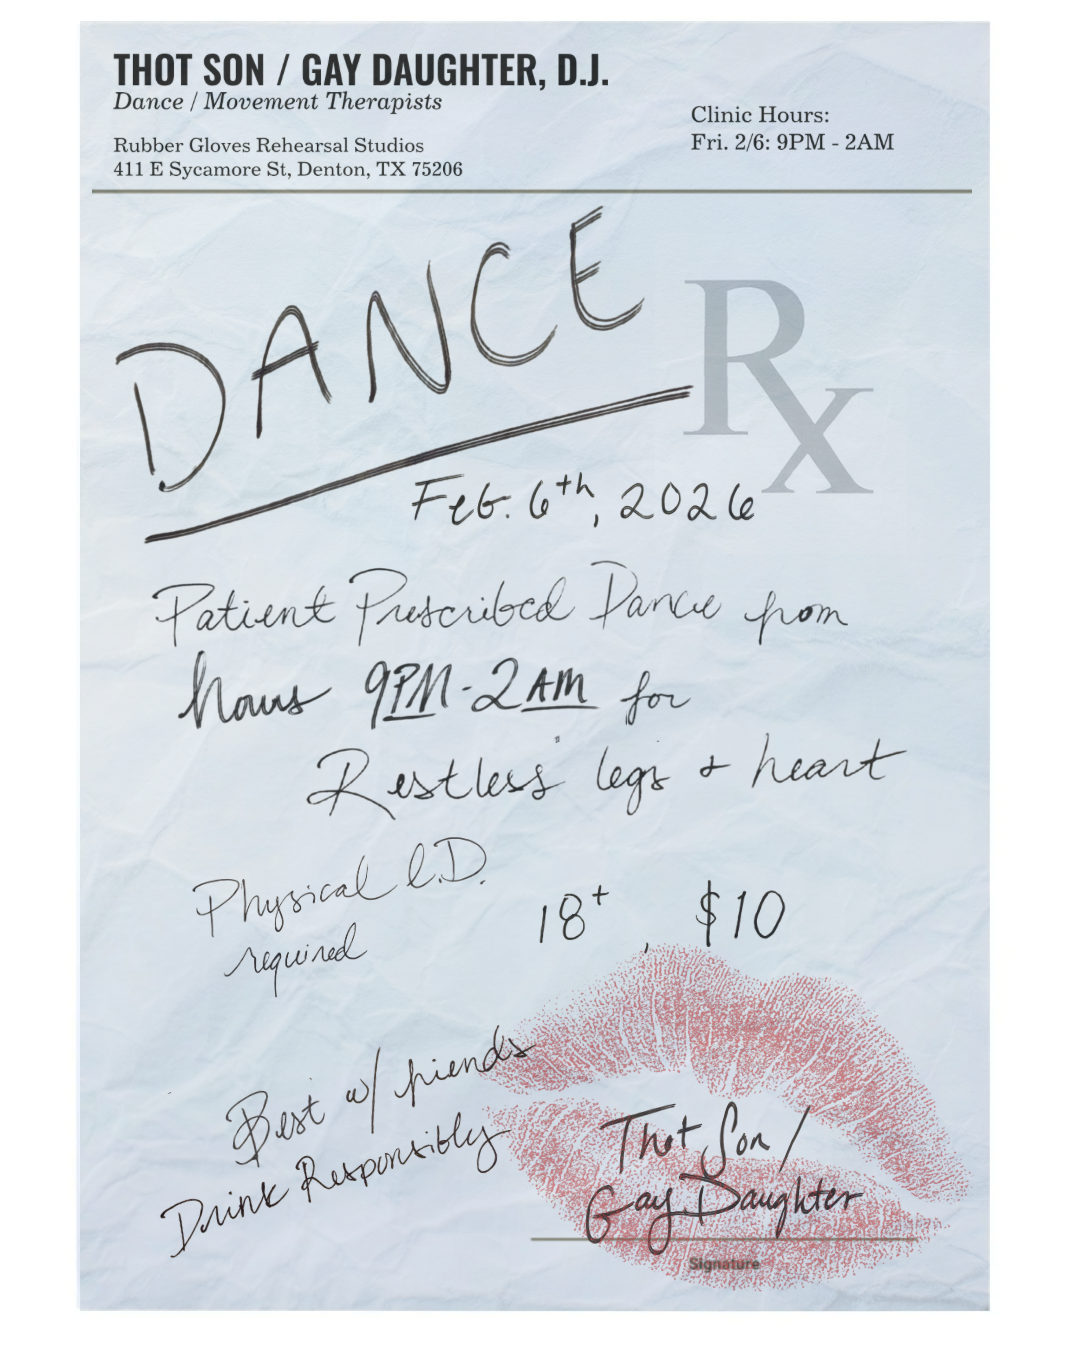 THOT SON / GAY DAUGHTER, D.J.
Dance / Movement Therapists
Rubber Gloves Rehearsal Studios
411 E Sycamore St, Denton, TX 75206
Clinic Hours:
Fri. 2/6: 9PM - 2AM
DANCE
Rx
Feb. 6th, 2026
Patient Prescribed Dance from
hours 9PM-2AM for
Restless legs + heart
Physical I.D.
required
18+, $10
Best w/ friends
Drink Responsibly
Thot Son /
Gay Daughter
Signature